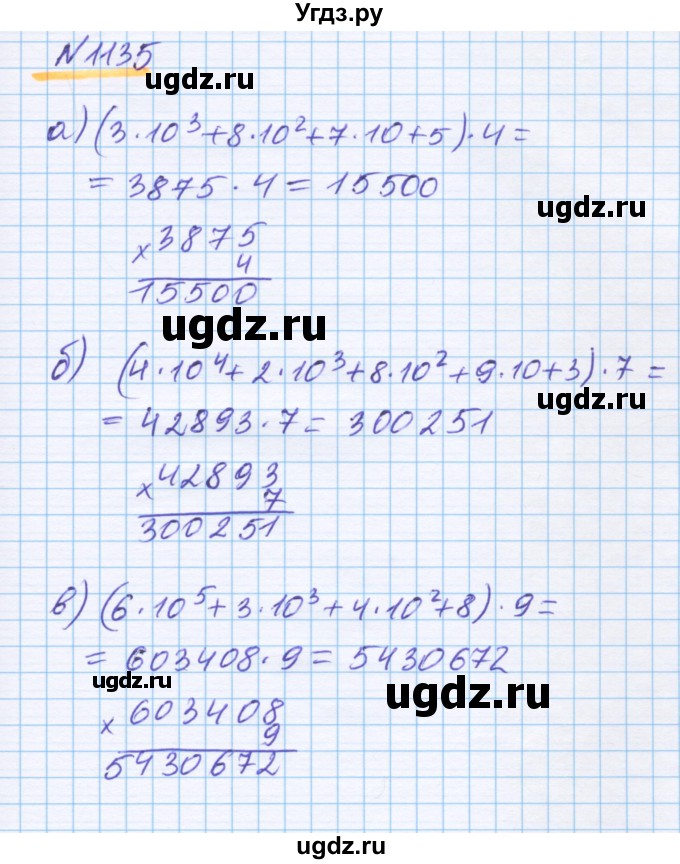 Угдз.ру
N1135
ugdz.ru
а) (3·10³+8·10²+7·10+5)·4=
= 3875·4=15500
ugdz.ru
×3875
4
15500
ugdz.ru
б) (4·10⁴+2·10³+8·10²+9·10+3)·7=
ugdz.ru
= 42893·7= 300251
×42893
7
300251
в) (6·10⁵+3·10³+4·10²+8)·9=
= 603408·9=5430672
ugdz.ru
ugdz.ru
×603408
9
5430672
ugdz.ru